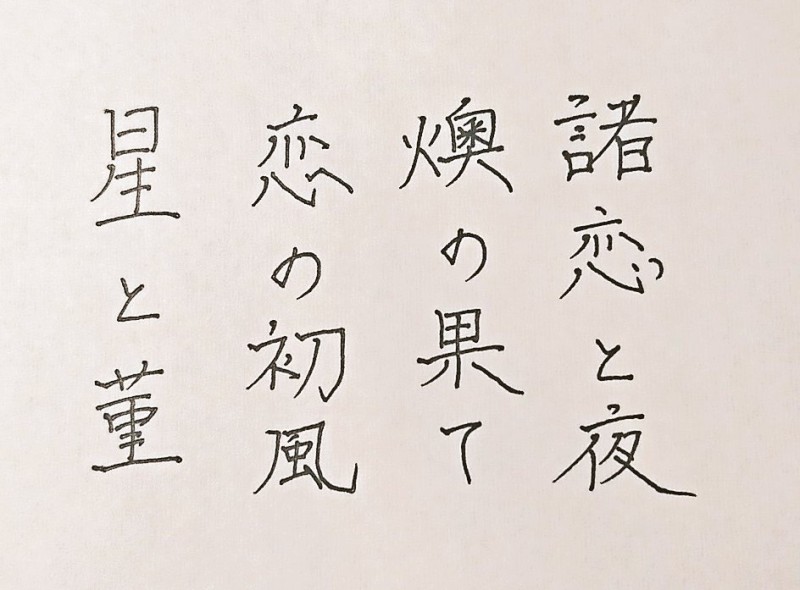 諸恋と夜
燠の果て
恋の初風
星と菫